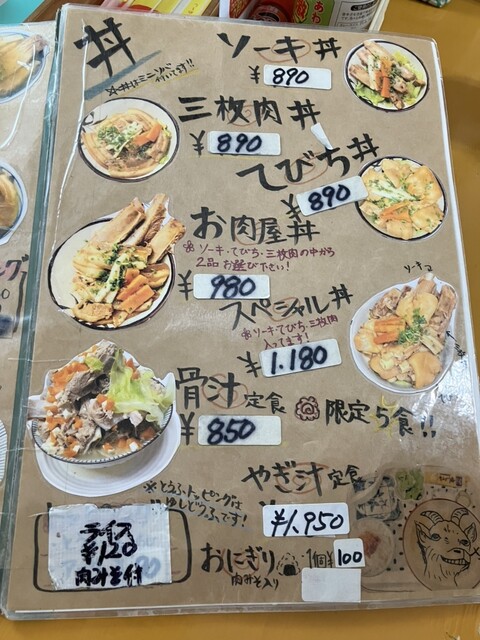 丼
※丼はミニソバ
付いてます!!
ソーキ丼
¥890
三枚肉丼
¥890
てびち丼
¥890
お肉屋丼
※ソーキ・てびち・三枚肉の中から
2品お選び下さい!
¥980
ソーキ
スペシャル丼
※ソーキ・てびち・三枚肉
入ってます!
¥1.180
骨汁定食 限定5食!!
¥850
やぎ汁定食
¥1.950
※とうふトッピングは
ゆしどうふです!
ライス
¥120
肉みそ付
おにぎり 1個¥100
肉みそ入り